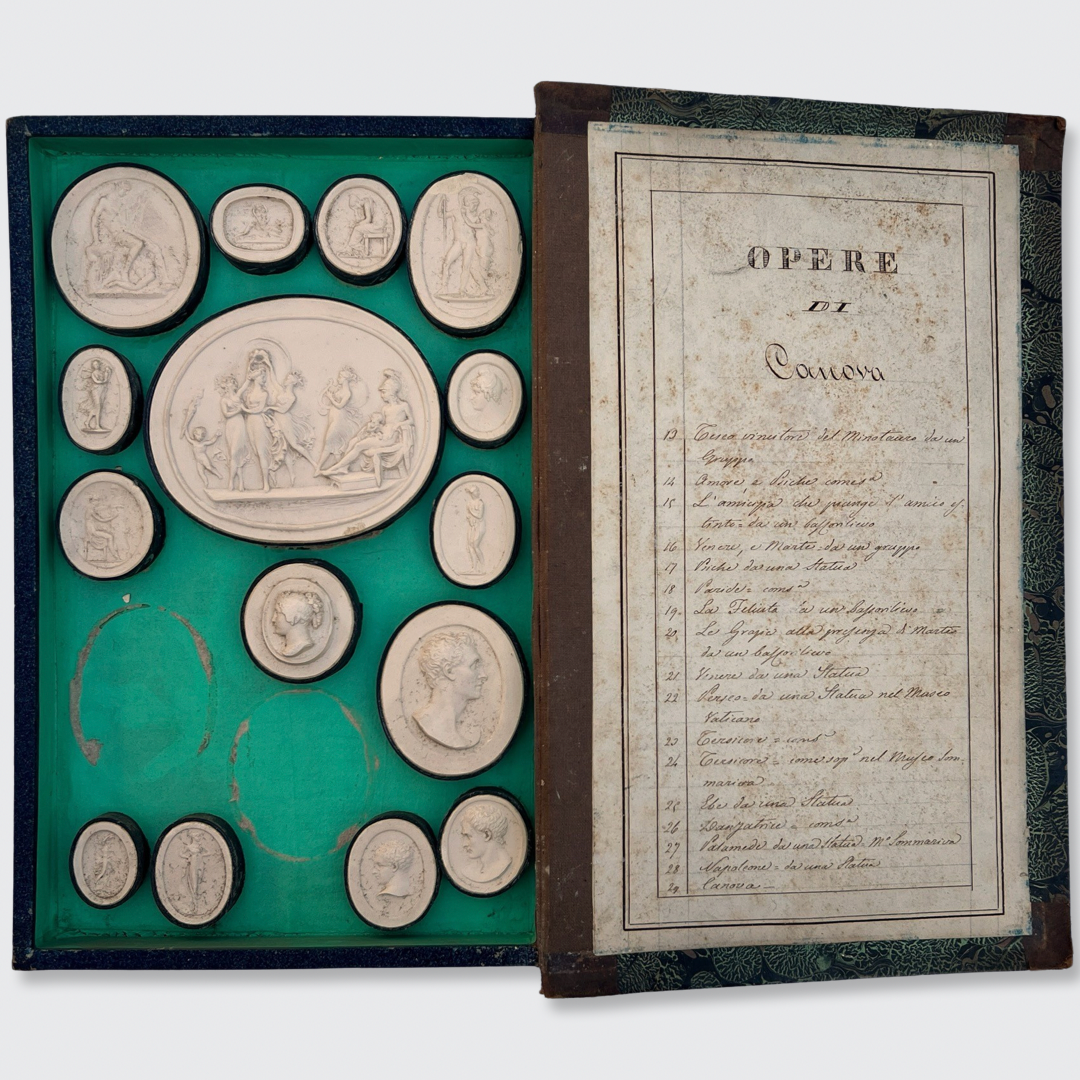 OPERE
DI
Canova
13 Teseo vincitore del Minotauro da un
Gruppo
14 Amore e Psiche come sª
15 L'amicizia che piange l'amico es
tento = da un bassorilievo
16 Venere, e Marte = da un gruppo
17 Psiche da una Statua
18 Paride = come sª
19. La Felicità da un bassorilievo
20 Le Grazie alla presenza di Marte
da un bassorilievo
21 Venere da una Statua
22 Perseo = da una Statua nel Museo
Vaticano
23 Tersicore = come sª
24 Tersicore = come sopª nel Museo Som-
mariva
25 Ebe da una Statua
26 Danzatrice = come sª
27 Palamede da una Statua Mº Sommariva
28 Napoleone = da una Statua
29 Canova —